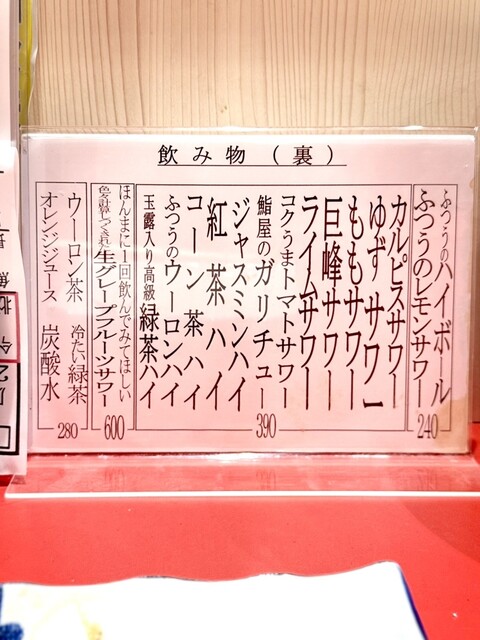 飲み物（裏）
ふつうのハイボール
ふつうのレモンサワー
240
カルピスサワー
ゆずサワー
ももサワー
巨峰サワー
ライムサワー
コクうまトマトサワー
鮨屋のガリチュー
ジャスミンハイ
紅茶ハイ
コーン茶ハイ
ふつうのウーロンハイ
玉露入り高級緑茶ハイ
390
ほんまに1回飲んでみてほしい
色々計算しつくされた生グレープフルーツサワー
600
ウーロン茶 冷たい緑茶
オレンジジュース 炭酸水
280